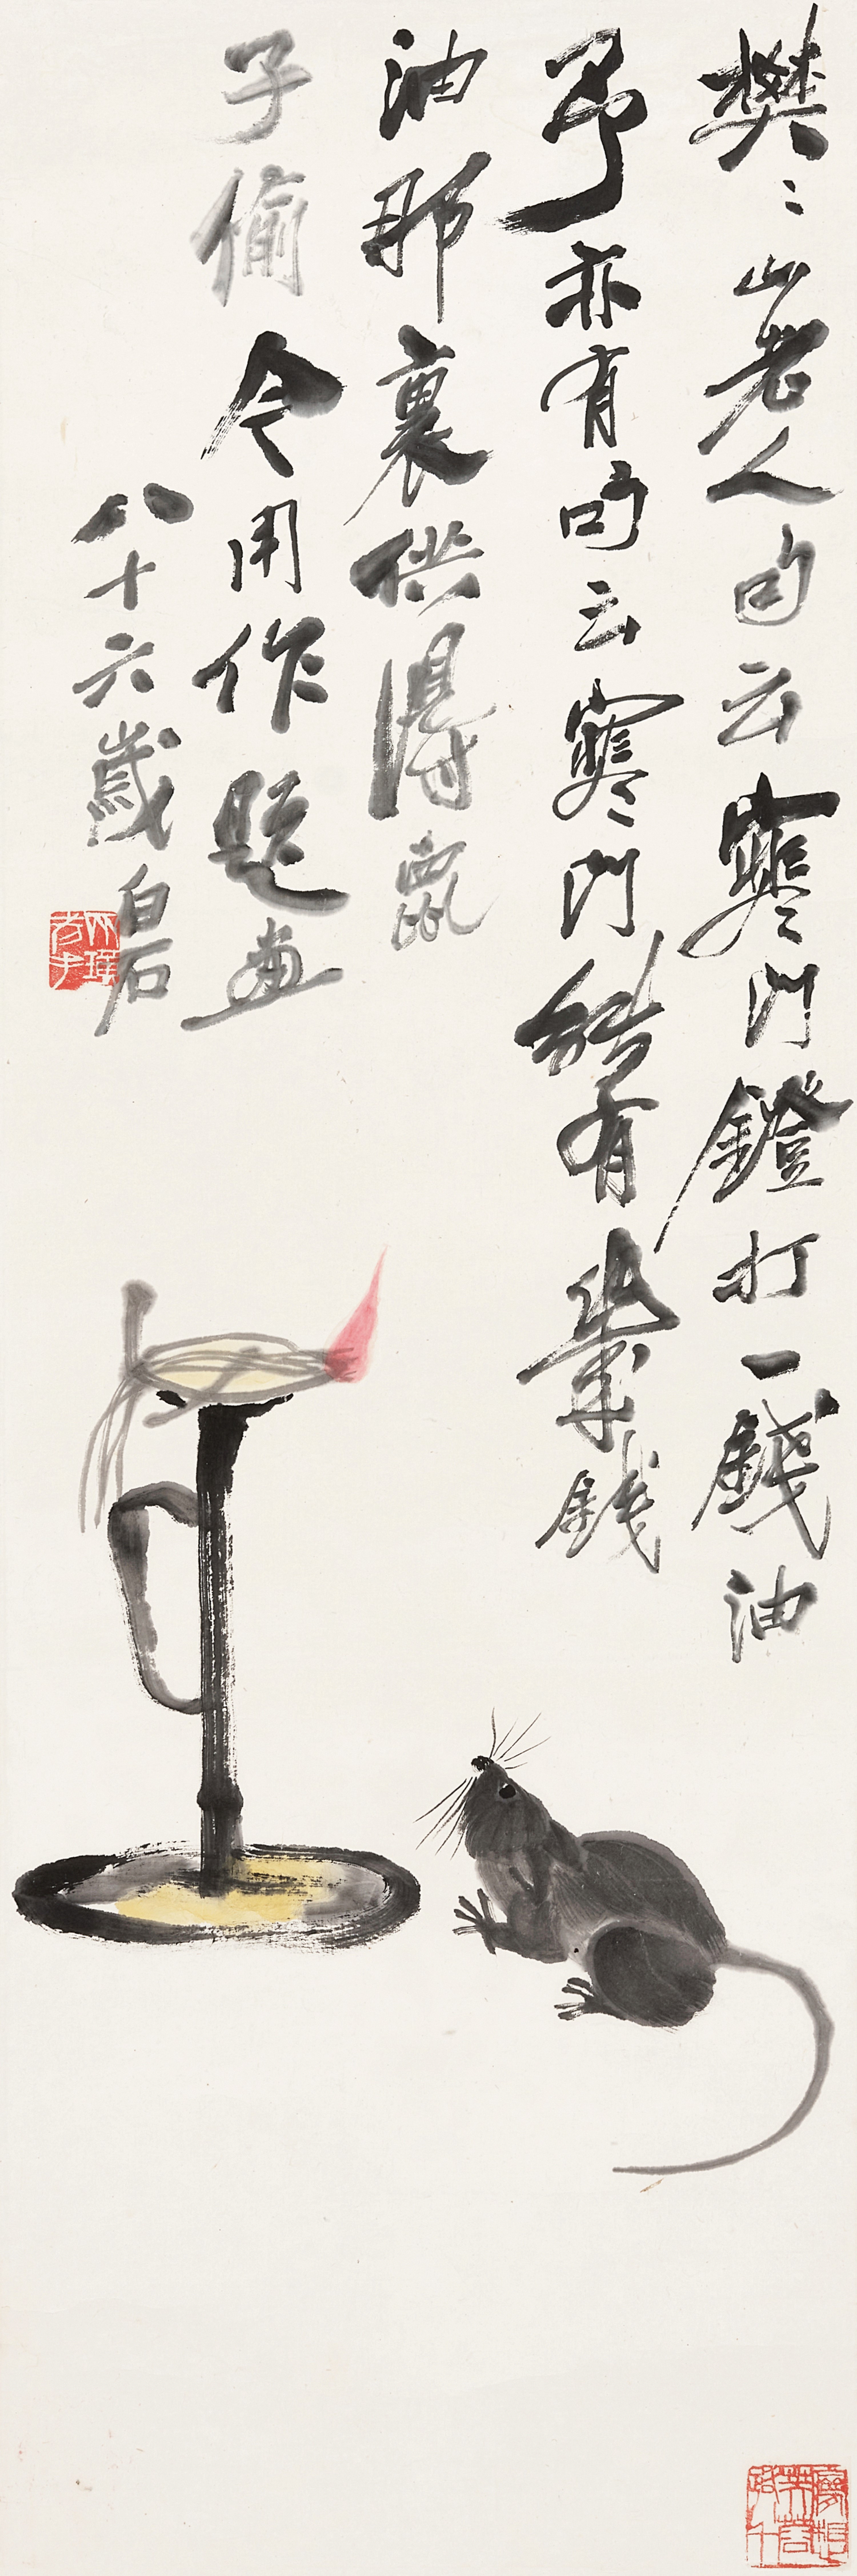 樊〻山老人句云寒門鐙打一錢油
予亦有句云寒門能有幾錢
油那裏供得鼠
子偷今用作題畫
八十六歲白石
夢想芙蓉路八千